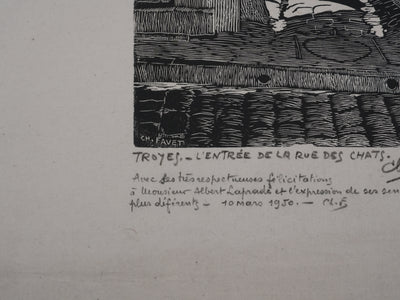 CH. FAVET
TROYES._ L'ENTRÉE DE LA RUE DES CHATS. Ch
Avec ses très respectueuses félicitations
à Monsieur Albert Laprade et l'expression de ses sen
plus déférents _ 10 Mars 1950. _ Ch. F